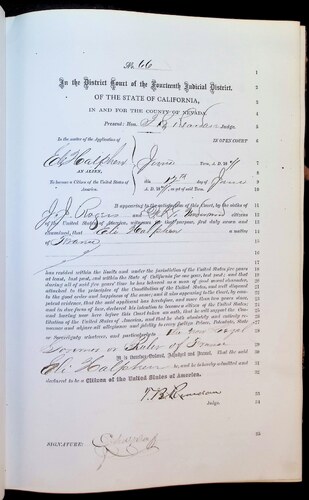 No. 66
In the District Court of the Fourteenth Judicial District,
OF THE STATE OF CALIFORNIA,
IN AND FOR THE COUNTY OF NEVADA.
Present: Hon. Judge.
In the matter of the Application of
IN OPEN COURT
Eli Halphen
AN ALIEN,
To become a Citizen of the United States of America.
June Term, A. D. 18
12th day of June
A. D. 18 as yet of said Term.
It appearing to the satisfaction of this Court, by the oaths of
J. J. Rogers and citizens
of the United States of America, witnesses for that purpose, first duly sworn and
examined, that Eli Halphen a native
of France
has resided within the limits and under the jurisdiction of the United States five years
at least, last past, and within the State of California for one year, last past; and that
during all of said five years' time he has behaved as a man of good moral character,
attached to the principles of the Constitution of the United States, and well disposed
to the good order and happiness of the same; and it also appearing to the Court, by com-
petent evidence, that the said applicant has heretofore, and more than two years since,
and in due form of law, declared his intention to become a citizen of the United States;
and having now here before this Court taken an oath, that he will support the Consti-
tution of the United States of America, and that he doth absolutely and entirely re-
nounce and abjure all allegiance and fidelity to every foreign Prince, Potentate, State
or Sovereignty whatever, and particularly to
Governor or Ruler of France
It is therefore Ordered, Adjudged and Decreed, That the said
Eli Halphen be, and he is hereby admitted and
declared to be a Citizen of the United States of America.
Judge.
SIGNATURE: